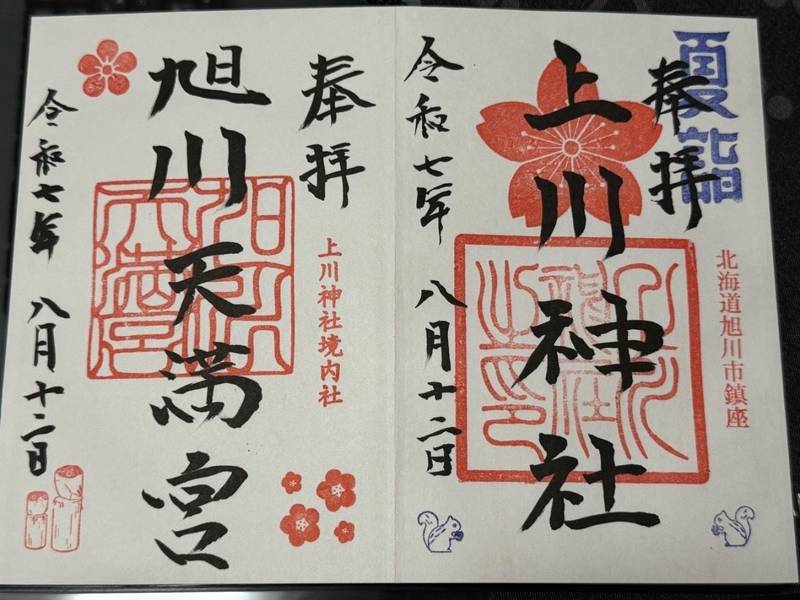 夏詣
奉拝
北海道旭川市鎮座
上川神社
令和七年 八月十二日
奉拝
上川神社境内社
旭川天満宮
令和七年 八月十二日